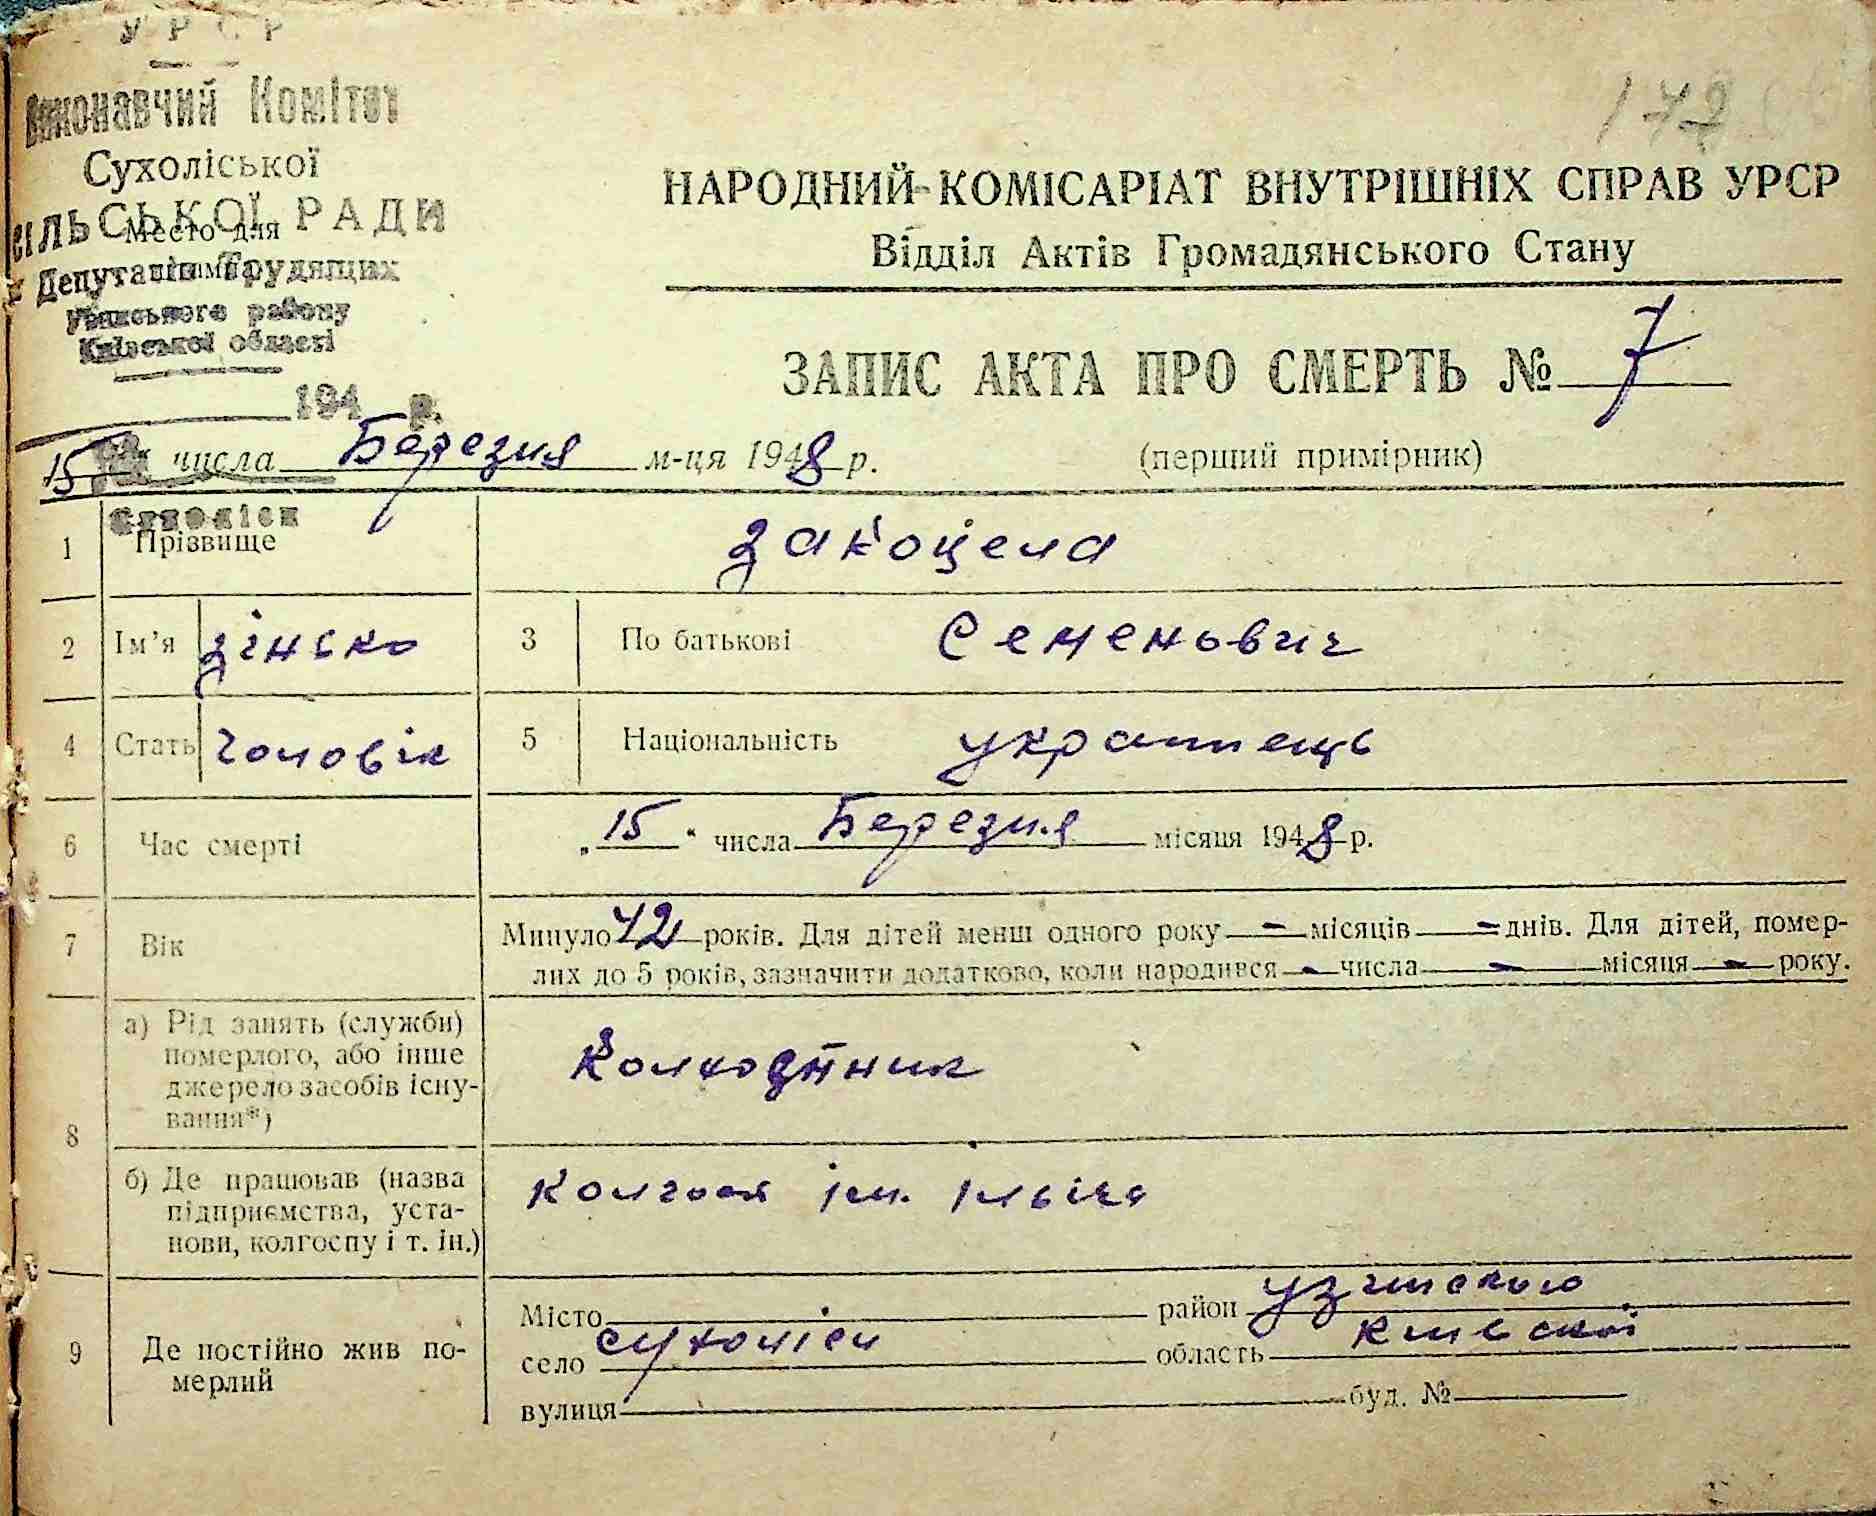 УРСР
Виконавчий Комітет
Сухоліської
СІЛЬСЬКОЇ РАДИ
Место для
штампа
Депутатів Трудящих
Узинського району
Київської області
194 р.
172
НАРОДНИЙ КОМІСАРІАТ ВНУТРІШНІХ СПРАВ УРСР
Відділ Актів Громадянського Стану
ЗАПИС АКТА ПРО СМЕРТЬ № 7
15 числа Березня м-ця 1948 р. (перший примірник)
Сухоліси
1 Прізвище Закоцела
2 Ім’я Зінько 3 По батькові Семенович
4 Стать Чоловік 5 Національність українець
6 Час смерті „15“ числа Березня місяця 1948 р.
7 Вік Минуло 42 років. Для дітей менш одного року — місяців — днів. Для дітей, помер-
лих до 5 років, зазначити додатково, коли народився — числа — місяця — року.
8 а) Рід занять (служби) померлого, або інше джерело засобів існу-вання*) Колходзник
б) Де працював (назва підприємства, уста-нови, колгоспу і т. ін.) колгосп ім. Ілліча
9 Де постійно жив по-мерлий
Місто район узинського
село сухоліси область київскої
вулиця буд. №